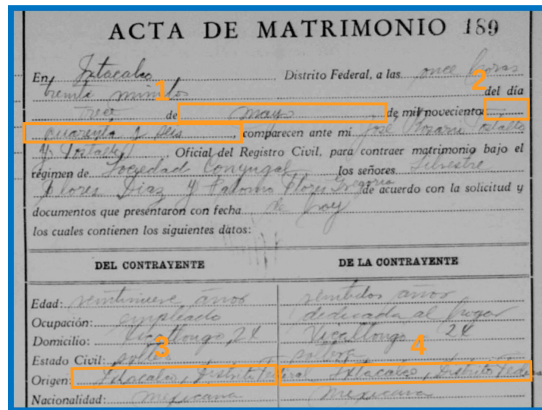 ACTA DE MATRIMONIO 189
En Iztacalco Distrito Federal, a las once horas
treinta minutos 1 2 del día
tres de mayo de mil novecientos
cuarenta y seis, comparecen ante mí José
y Oficial del Registro Civil, para contraer matrimonio bajo el
régimen de Sociedad Conyugal los señores Silvestre
Flores Díaz y Paloma Flores Gregoria de acuerdo con la solicitud y
documentos que presentaron con fecha de hoy
los cuales contienen los siguientes datos:
DEL CONTRAYENTE DE LA CONTRAYENTE
Edad: veintinueve años veintidos años
Ocupación: empleado dedicada al hogar
Domicilio: 24 24
3 4
Estado Civil:
Origen: Iztacalco, Distrito Federal Iztacalco, Distrito Federal
Nacionalidad: mexicana mexicana